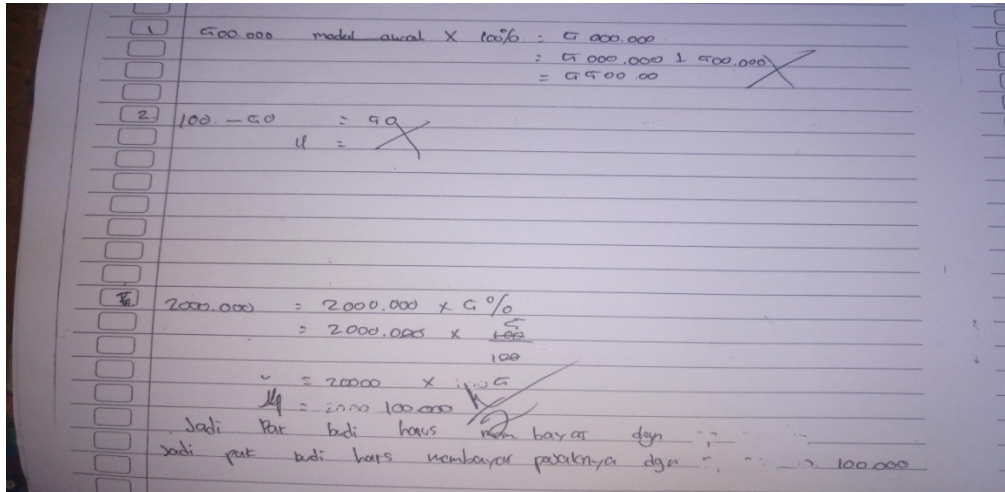 1 500.000 modal awal X 100% = 5 000.000
= 5 000.000 1 500.000
= 5500.00
2 100 - 50 = 50
4 =
2000.000 = 2000.000 x 5%
= 2000.000 x 5
100
= 20000 x 5
= 100.000
Jadi Pak budi harus mem bayar dgn
Jadi pak budi hars membayar pajaknya dgn 100.000